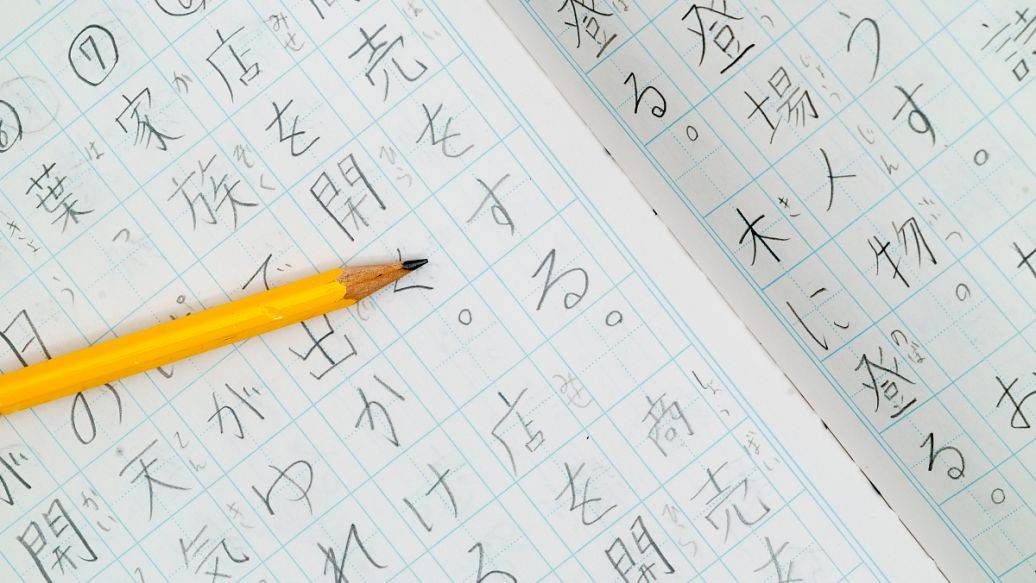 諸
うす。
登場人物。お
登る。木に登る。
売をする。商売を
店を開く。店を開
⑦家族で出かける
葉っぱがゆれ
の天気
が開